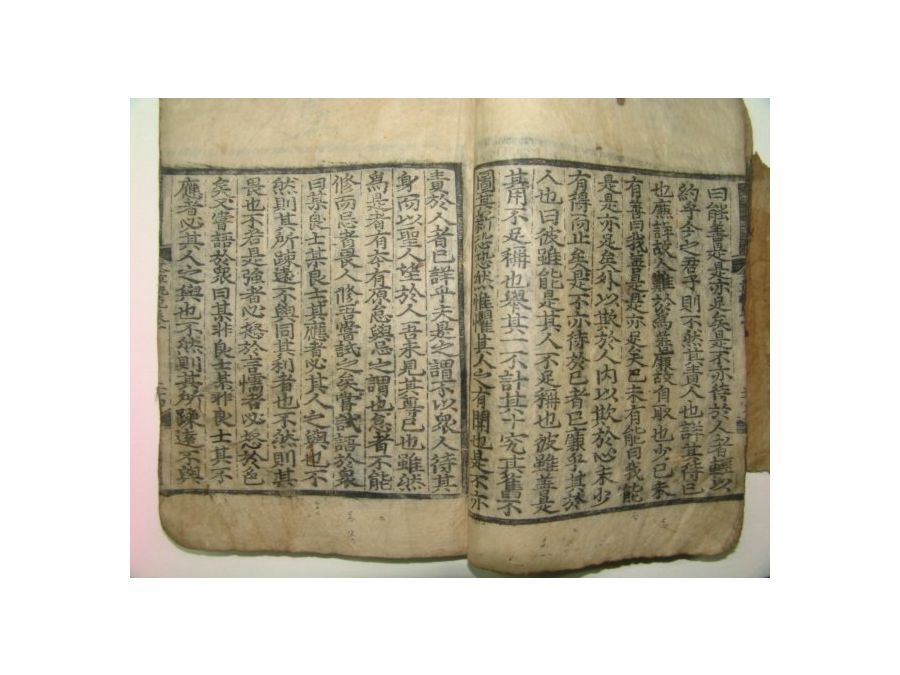 曰能善是是亦足矣是不亦待於人者輕以
約乎今之君子則不然其責人也詳其待已
也廉詳故人難於爲善廉故自取也少已未
有善曰我善是是亦足矣已未有能曰我能
是是亦足矣外以欺於人內以欺於心未少
有得而止矣是不亦待於已者已廉乎其於
人也曰彼雖能是其人不足稱也彼雖善是
其用不足稱也擧其一不計其十究其舊不
圖其新恐恐然惟懼其人之有聞也是不亦
責於人者已詳乎夫是之謂不以衆人待其
身而以聖人望於人吾未見其尊已也雖然
爲是者有本有原怠與忌之謂也怠者不能
修而忌者畏人修吾嘗試之矣嘗試語於衆
曰某良士某良士其應者必其人之與也不
然則其所疎遠不與同其利者也不然則其
畏也不若是強者必怒於言懦者必怒於色
矣又嘗語於衆曰某非良士某非良士其不
應者必其人之與也不然則其所疎遠不與